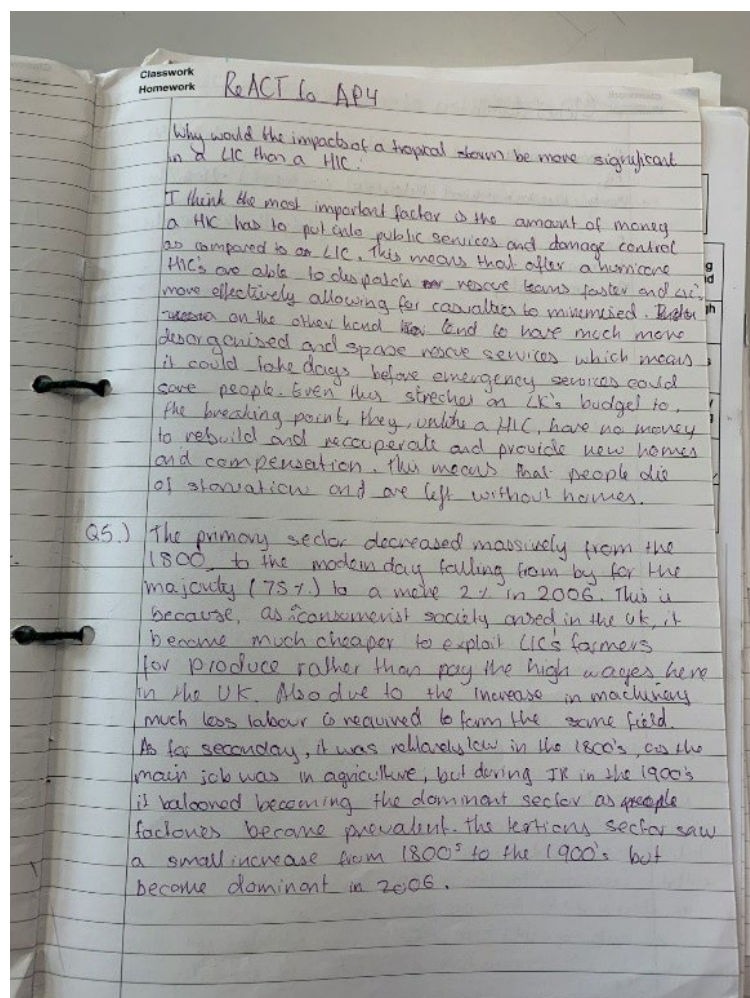 Classwork
Homework
ReACT to AP4
Why would the impacts of a tropical storm be more significant
in a LIC than a HIC?
I think the most important factor is the amount of money
a HIC has to put into public services and damage control
as compared to a LIC. This means that after a hurricane
HIC's are able to dispatch rescue teams faster and LIC's
more effectively allowing for casualties to minimised.
on the other hand tend to have much more
desorganised and sparse rescue services which means
it could take days before emergency services could
save people. Even this streches an LIC's budget to
the breaking point, they, unlike a HIC, have no money
to rebuild and reccuperate and provide new homes
and compensation. This means that people die
of starvation and are left without homes.
Q5.) The primary sector decreased massively from the
1800 to the modern day falling from by far the
majority (75%) to a mere 2% in 2006. This is
because, as consumerist society arised in the UK, it
became much cheaper to exploit LIC's farmers
for produce rather than pay the high wages here
in the UK. Also due to the increase in machinery
much less labour is required to farm the same field.
As for seconday, it was relitavely low in the 1800's, as the
main job was in agriculture, but during IR in the 1900's
it balooned becoming the dominant sector as
factories became prevalent. The tertiary sector saw
a small increase from 1800s to the 1900's but
become dominant in 2006.